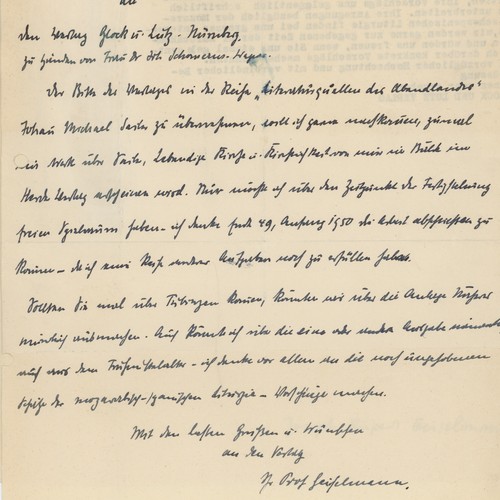 an
den Verlag Glock u. Lutz. Nürnberg.
zu Händen von Frau Dr.
Der Bitte des Verlages in der Reihe „Literaturquellen des Abendlandes"
Johann Michael Sailer zu übernehmen, will ich gerne nachkommen, zumal
ein Werk über Sailer, Lebendige Kirche u. von mir in Bälde im
Herder Verlag erscheinen wird. Nur möchte ich über den Zeitpunkt der Fertigstellung
freien Spielraum haben - ich denke Ende 49, Anfang 1950 die Arbeit abschließen zu
können - da ich eine Reihe anderer Aufgaben noch zu erfüllen habe.
Sollten Sie mal über Tübingen kommen, könnten wir über die Anlage Näheres
mündlich ausmachen. Auch könnte ich über die eine oder andere Ausgabe
auch aus dem Frühmittelalter - ich denke vor allem an die noch ungehobenen
Schätze der mozarabisch-spanischen Liturgie - Vorschläge machen.
Mit den besten Grüßen u. Wünschen
an den Verlag
Ihr Prof Geiselmann.